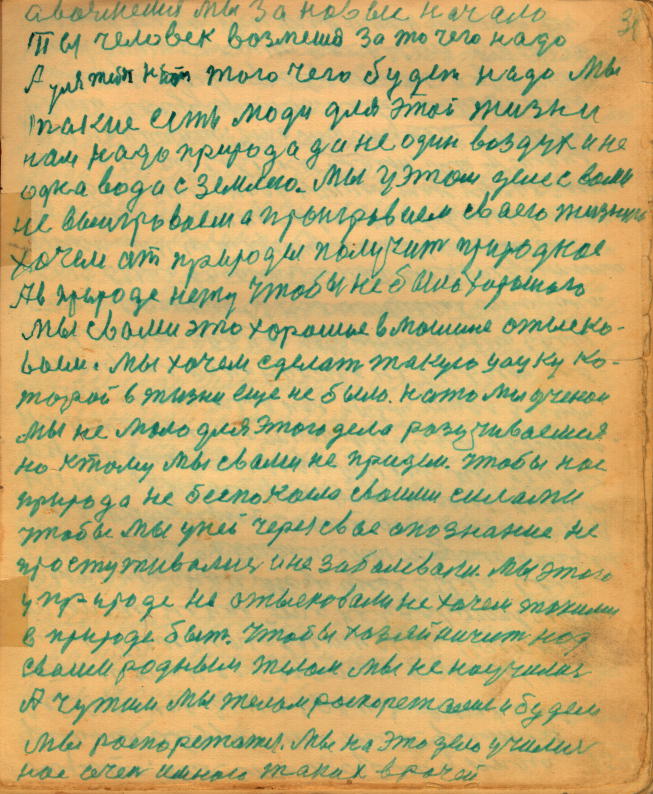 мы за новые начало
Ты человек возмеш за то чего надо
А для тебя того чего будет надо Мы
такие есть люди для этой жизни
нам надо природа да не один воздух и не
одна вода с землею. Мы у этом деле с вами
не выигроваем а проигроваем своего жизню
хочем от природы получит природное
А в природе нету Чтобы не было хорошого
Мы с вами это хорошые в машине отыско-
ваем. Мы хочем сделат такую науку ко-
торой в жизни еще не было. На то мы ученои
Мы не мало для этого дела разучиваемся
но к тому мы с вами не придем. Чтобы нас
природа не беспокоила своими силами
Чтобы мы у ней через свое опознание не
простуживались и не заболевали. Мы этого
у природе не отысковали не хочем такими
в природе быт. Чтобы хозяйничит над
своим родным телом мы не научились
А чужим мы телом роспорежаемся и будем
Мы роспорежатся. Мы на это дело учимся
нас очен много таких врачей